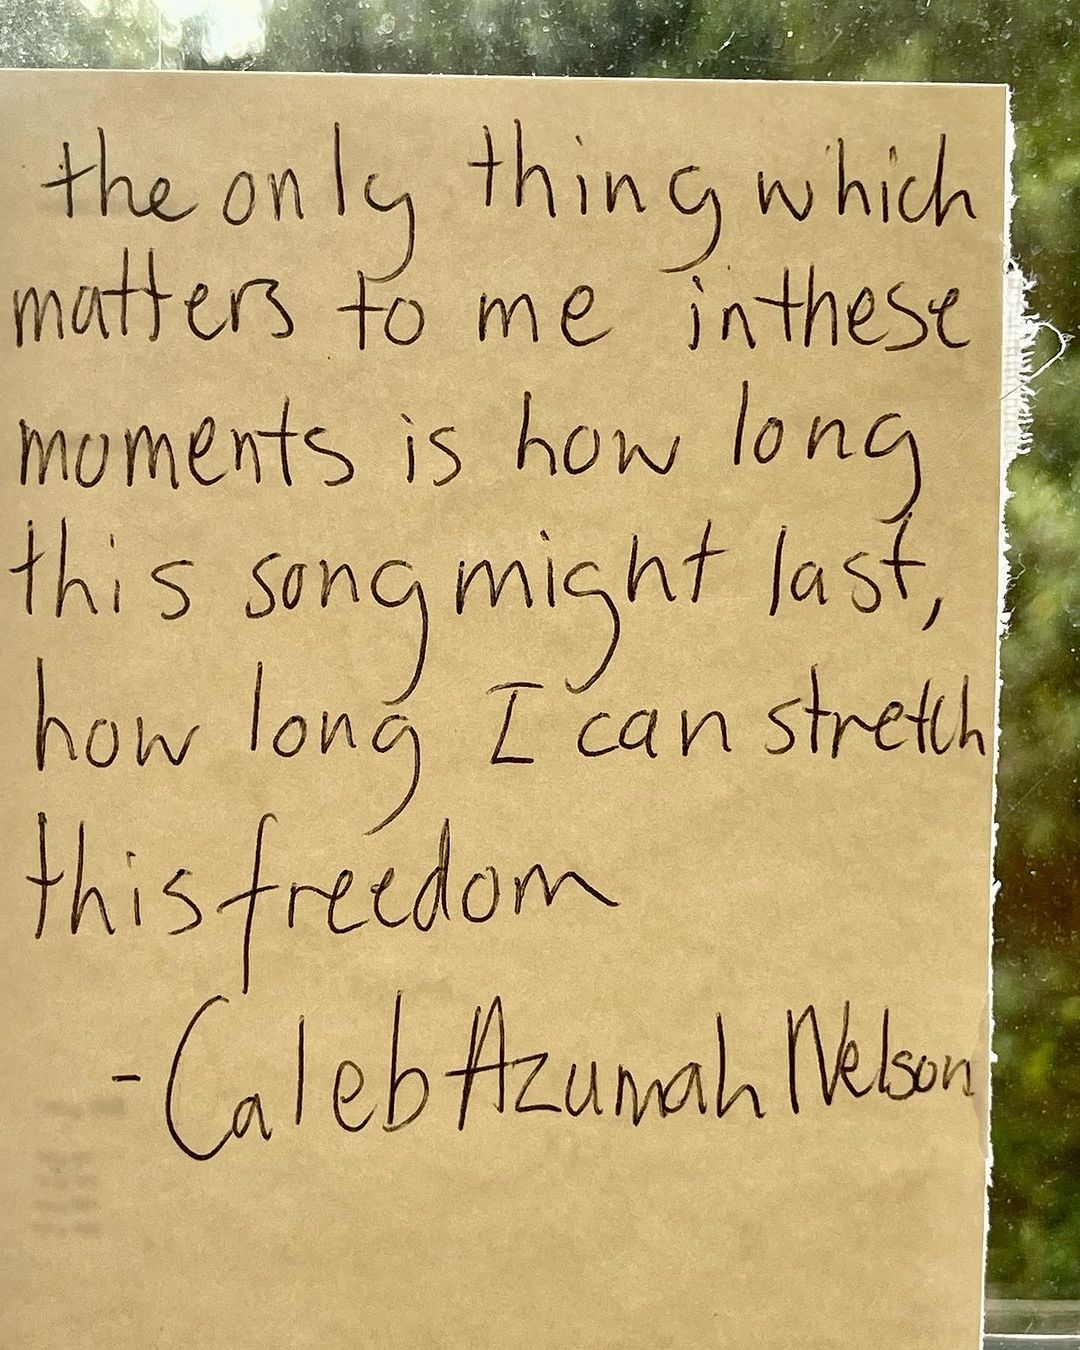 the only thing which
matters to me in these
moments is how long
this song might last,
how long I can stretch
this freedom
- Caleb Azumah Nelson